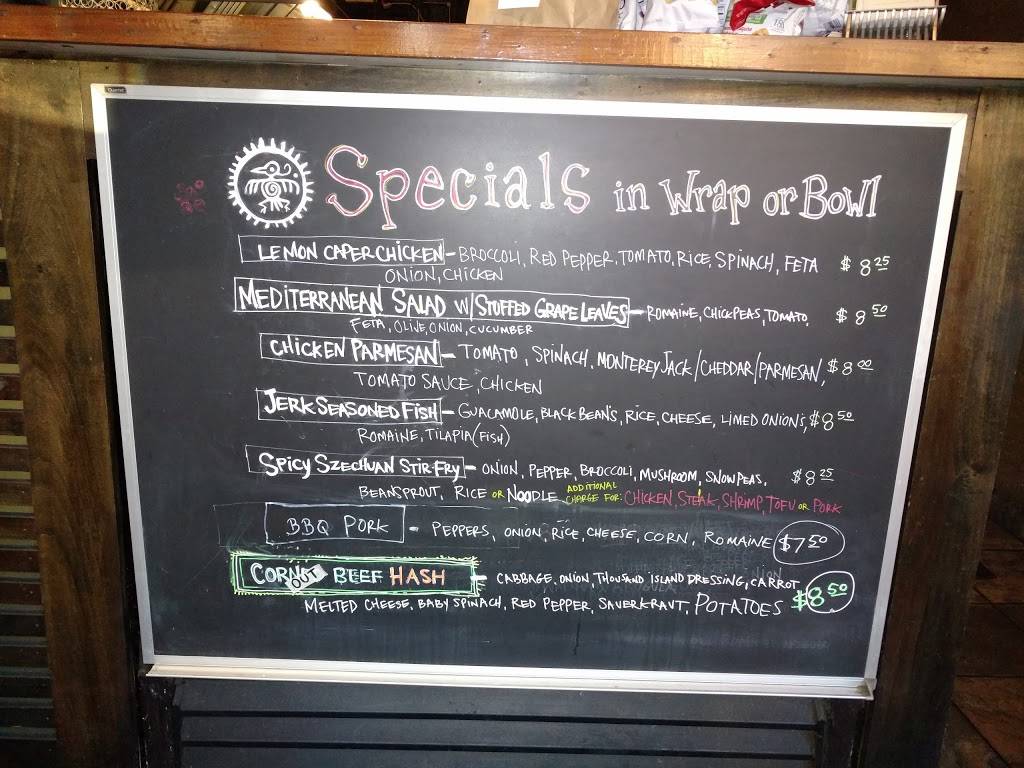 Specials in Wrap or Bowl
LEMON CAPER CHICKEN - BROCCOLI, RED PEPPER, TOMATO, RICE, SPINACH, FETA $8.25
ONION, CHICKEN
MEDITERRANEAN SALAD W/ STUFFED GRAPE LEAVES - ROMAINE, CHICKPEAS, TOMATO, $8.50
FETA, OLIVE, ONION, CUCUMBER
CHICKEN PARMESAN - TOMATO, SPINACH, MONTEREY JACK/CHEDDAR/PARMESAN, $8.00
TOMATO SAUCE, CHICKEN
JERK SEASONED FISH - GUACAMOLE, BLACK BEANS, RICE, CHEESE, LIMED ONION'S, $8.50
ROMAINE, TILAPIA (FISH)
SPICY SZECHUAN STIR-FRY - ONION, PEPPER, BROCCOLI, MUSHROOM, SNOWPEAS, $8.25
BEANSPROUT, RICE OR NOODLE ADDITIONAL CHARGE FOR: CHICKEN, STEAK, SHRIMP, TOFU OR PORK
BBQ PORK - PEPPERS, ONION, RICE, CHEESE, CORN, ROMAINE $7.50
CORN BEEF HASH - CABBAGE, ONION, THOUSAND ISLAND DRESSING, CARROT
MELTED CHEESE, BABY SPINACH, RED PEPPER, SAUERKRAUT, POTATOES $8.50